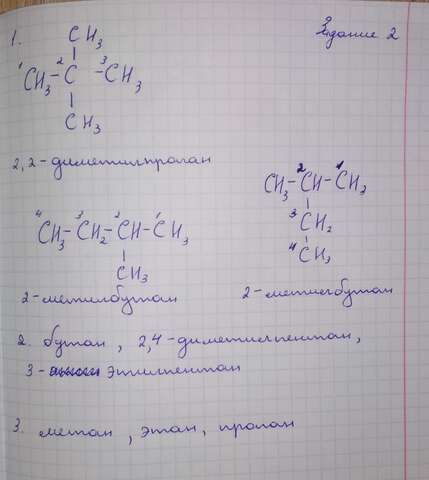 Задание 2
1.
CH3
1 2 3
CH3 - C - CH3
CH3
2,2-диметилпропан
4 3 2 1
CH3 - CH2 - CH - CH3
CH3
2-метилбутан
2 1
CH3 - CH - CH3
3
CH2
4
CH3
2-метилбутан
2. бутан, 2,4-диметилпентан,
3- этилпентан
3. метан, этан, пропан